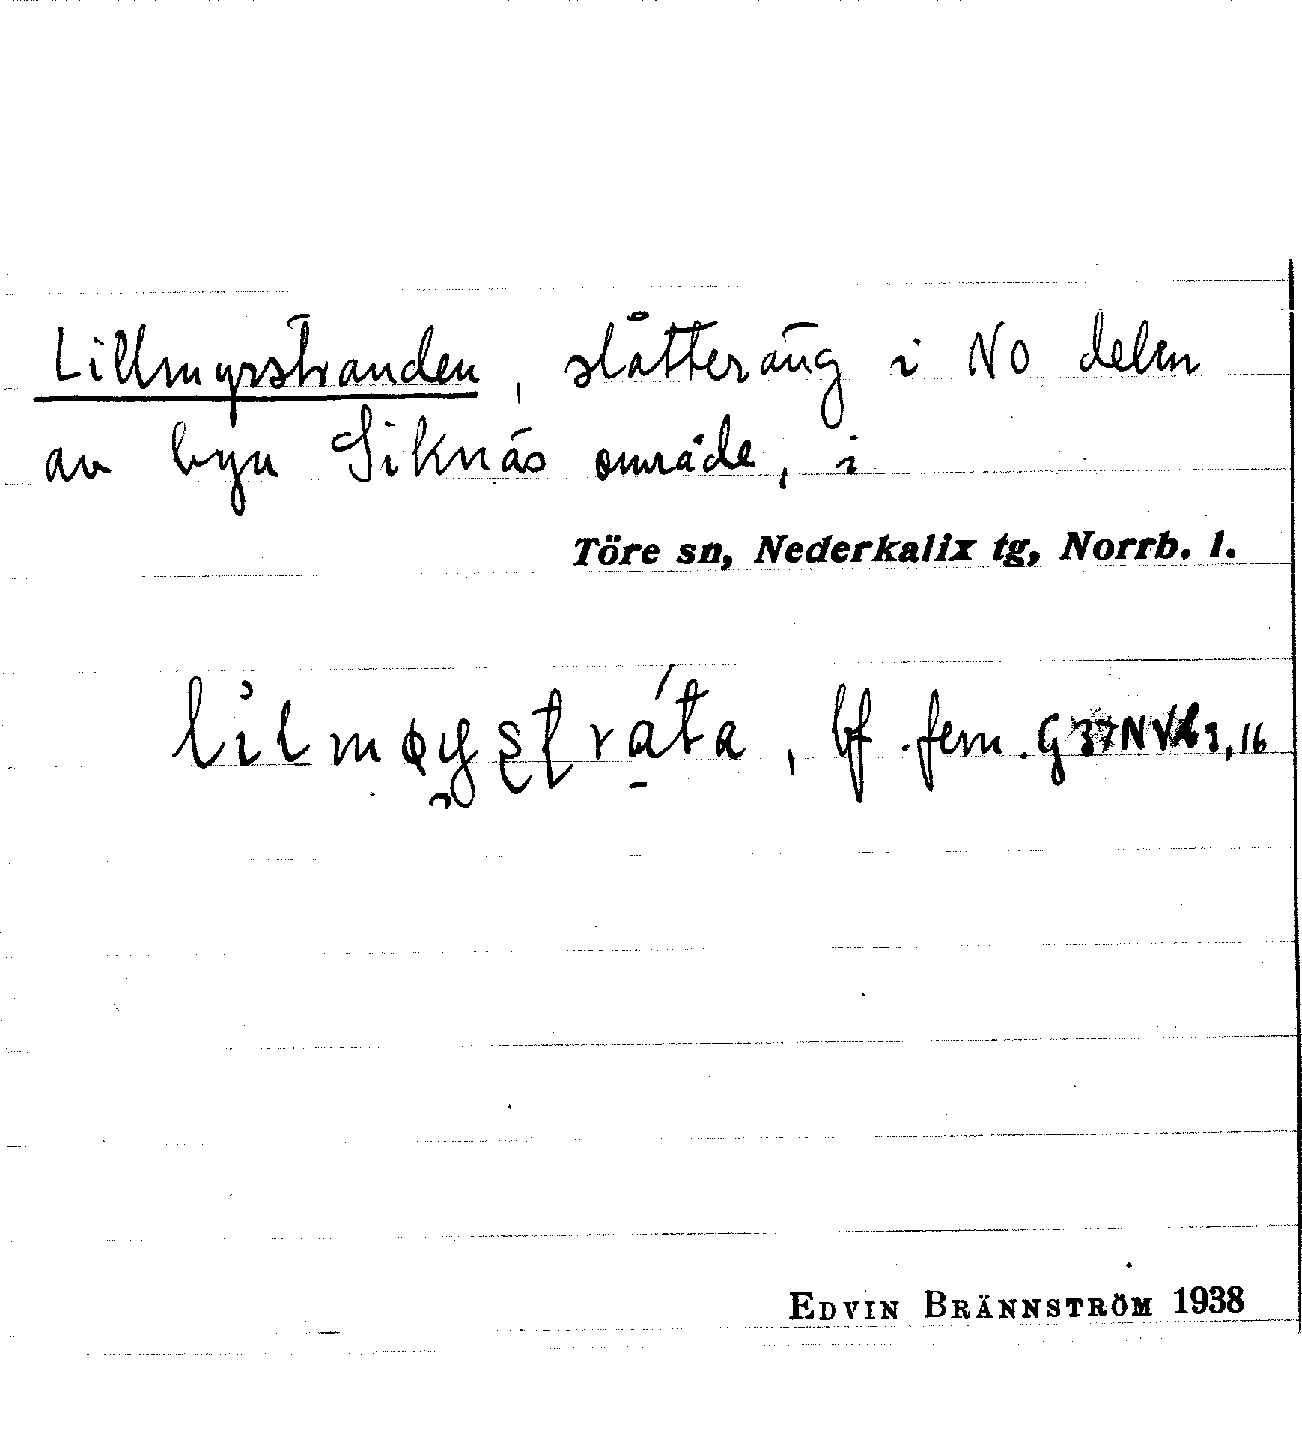 Lillmyrstranden, slåtteräng i NO delen
av byn Siknäs område, i
Töre sn, Nederkalix tg, Norrb. l.
bf. fem.
EDVIN BRÄNNSTRÖM 1938